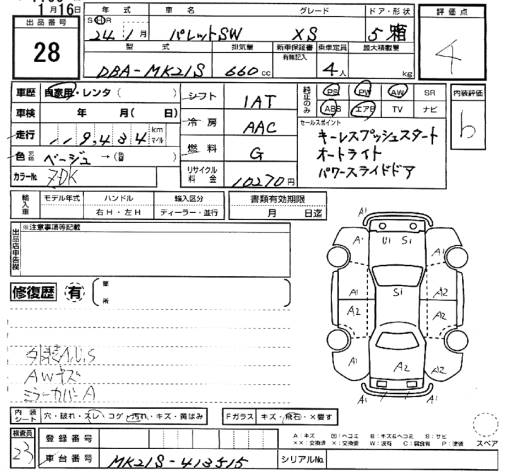 1月16日
出品番号
28
年式 車名 グレード ドア・形状
SH 24年1月 パレットSW XS 5 箱
型式 排気量 新車保証書 乗車定員 最大積載量
有無記入
DBA-MK21S 660cc 4人 kg
評価点
4
車歴 自家用・レンタ( )
車検 年 月( 日)
走行 119,434 km マイル
色 ベージュ →( )
カラーNo. ZDK
シフト 1AT
冷房 AAC
燃料 G
リサイクル料金 10270円
純正のみ PS PW AW SR
ABS エアB TV ナビ
セールスポイント
キーレスプッシュスタート
オートライト
パワースライドドア
内装評価
b
輸入車 モデル年式 ハンドル 輸入区分
右H・左H ディーラー・並行
書類有効期限
月 日迄
出品店申告欄
※注意事項等記載
修復歴 有 箇所
外装A,U,S
AWキズ
ミラーカバーA
A1 U1 S1 A1
A1 S1 A2
A2 A2
A1 A2 A2
A1 A1
内装シート 穴・破れ・スレ・コゲ・汚れ・キズ・黄ばみ
Fガラス キズ・飛石・X要す
検査員
23
登録番号
車台番号 MK21S-413515
シリアルNo.
A:キズ U:ヘコミ B:キズ&ヘコミ S:サビ
XX:交換済 X:交換要 W:波有 C:腐食有 P:塗装
スペア